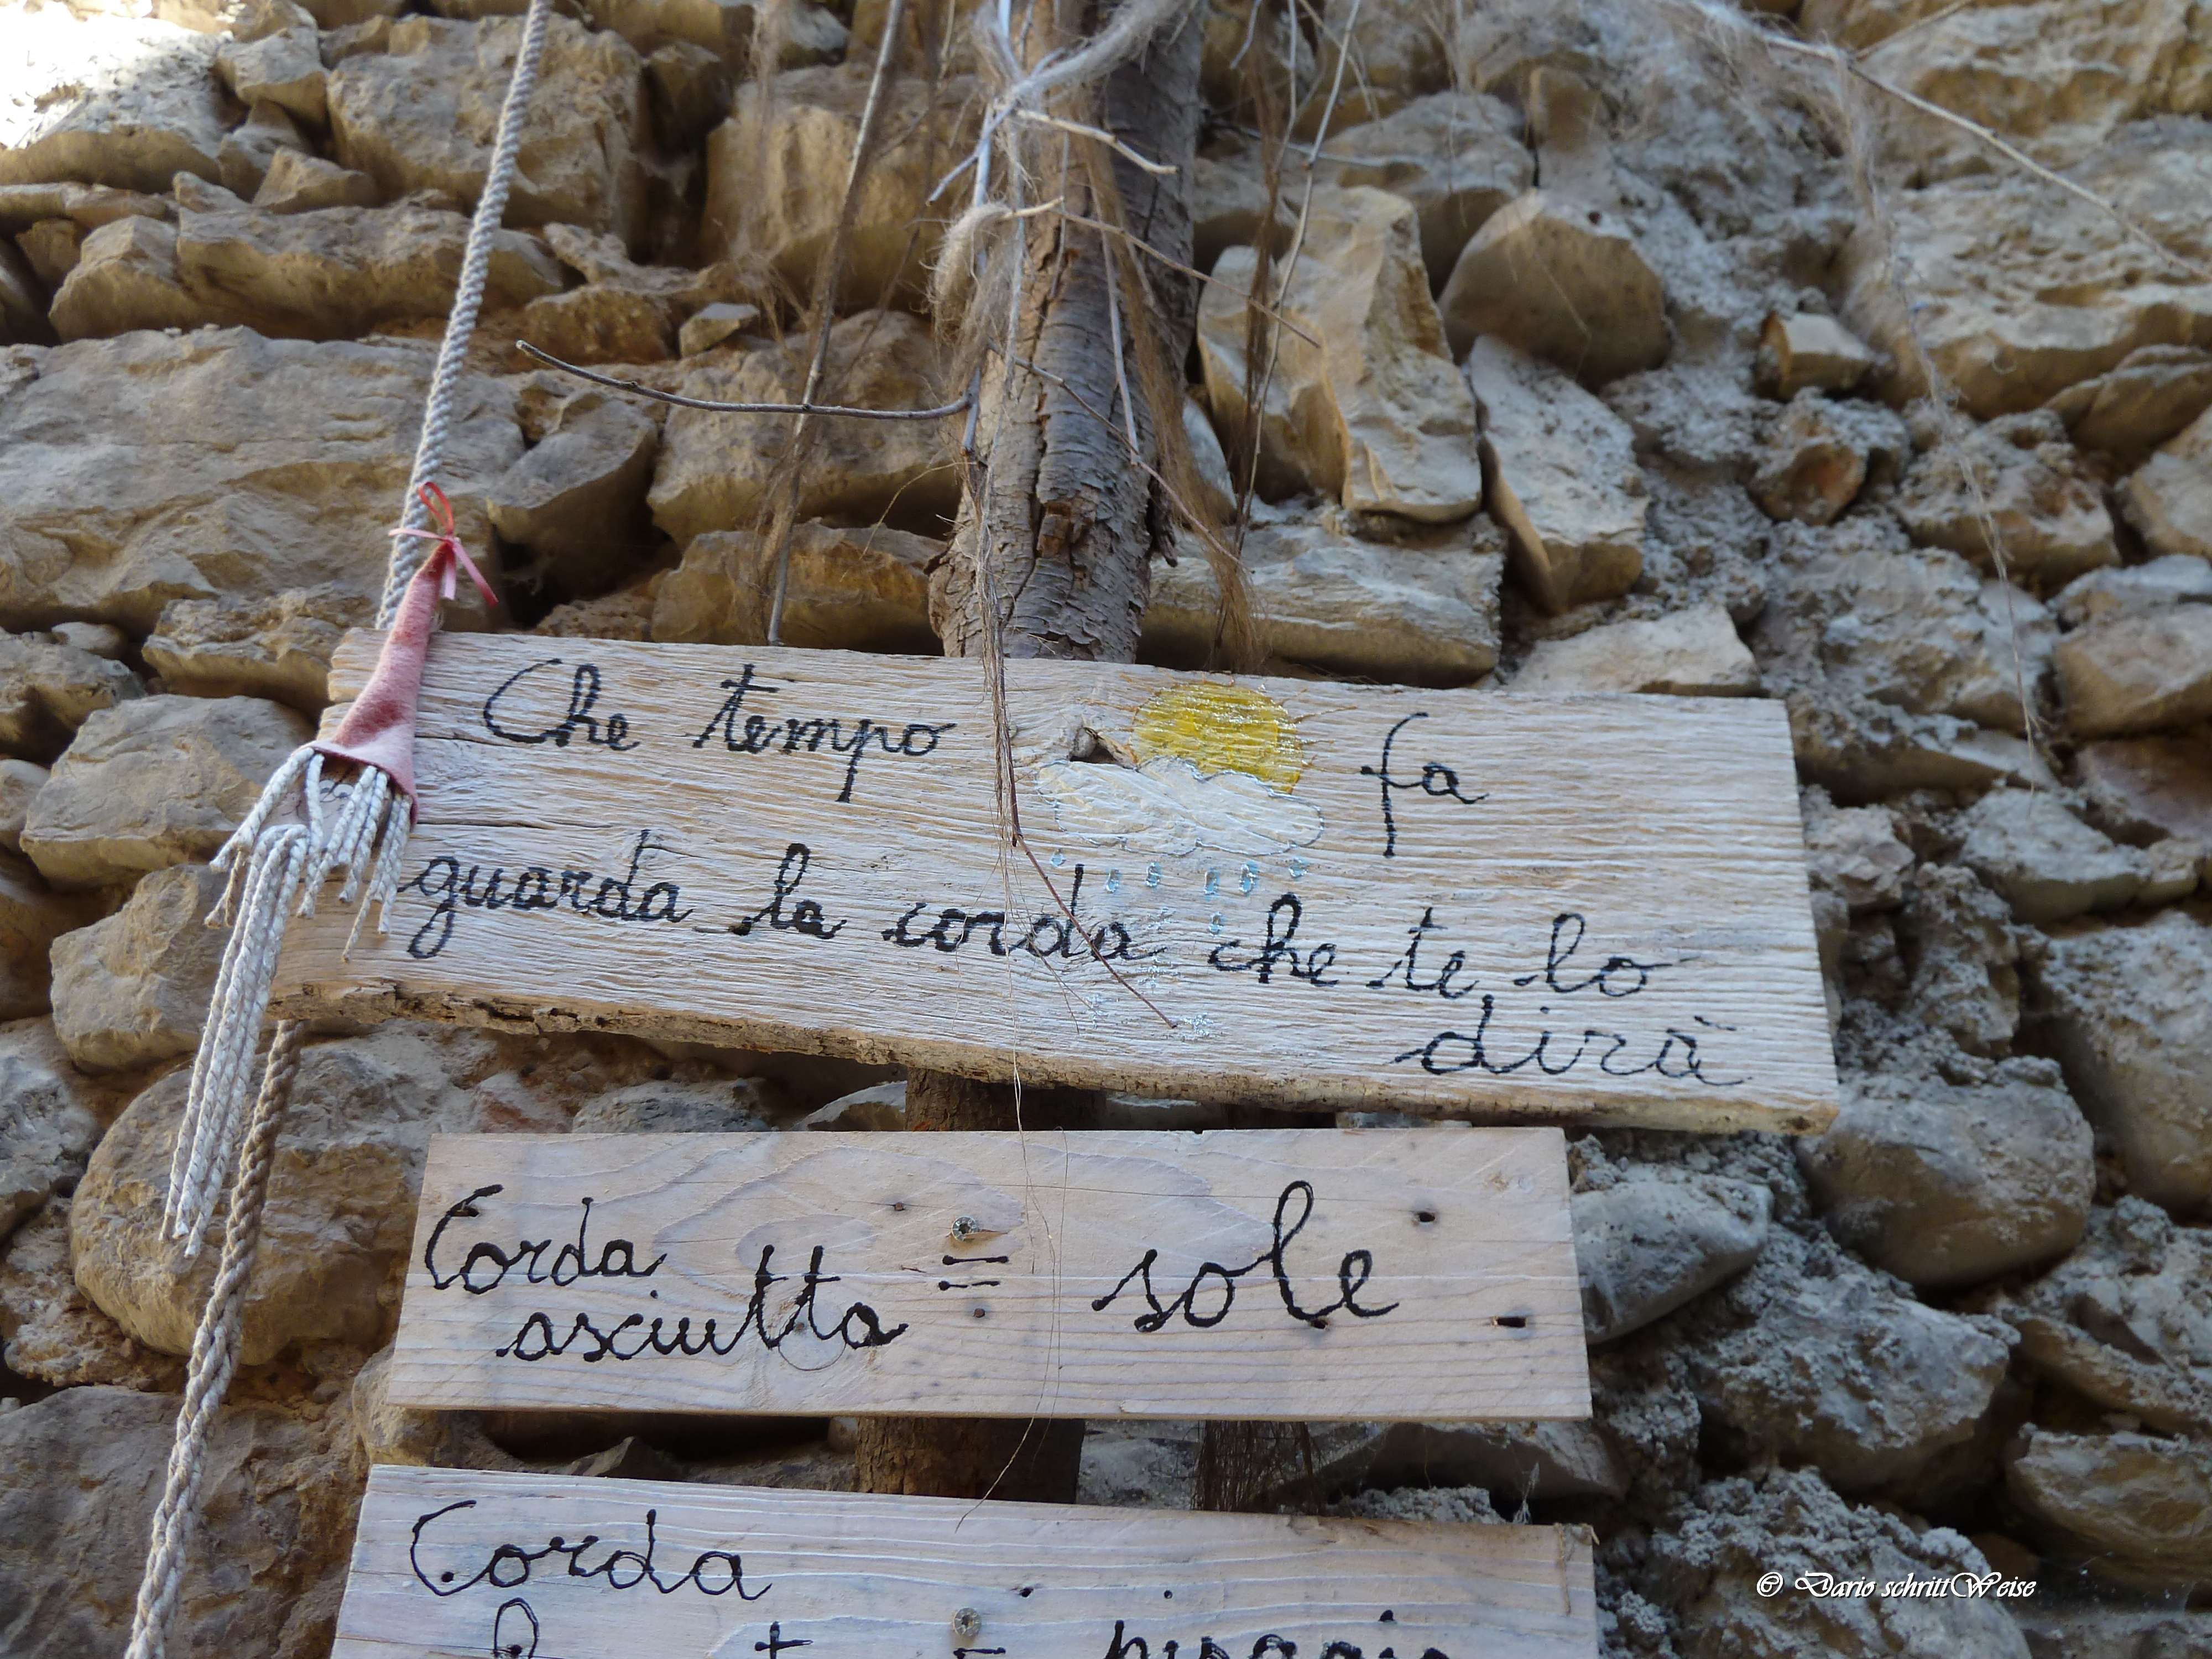 Che tempo fa
guarda la corda che te lo
dirà
Corda
asciutta = sole
Corda
© Dario schrittWeise